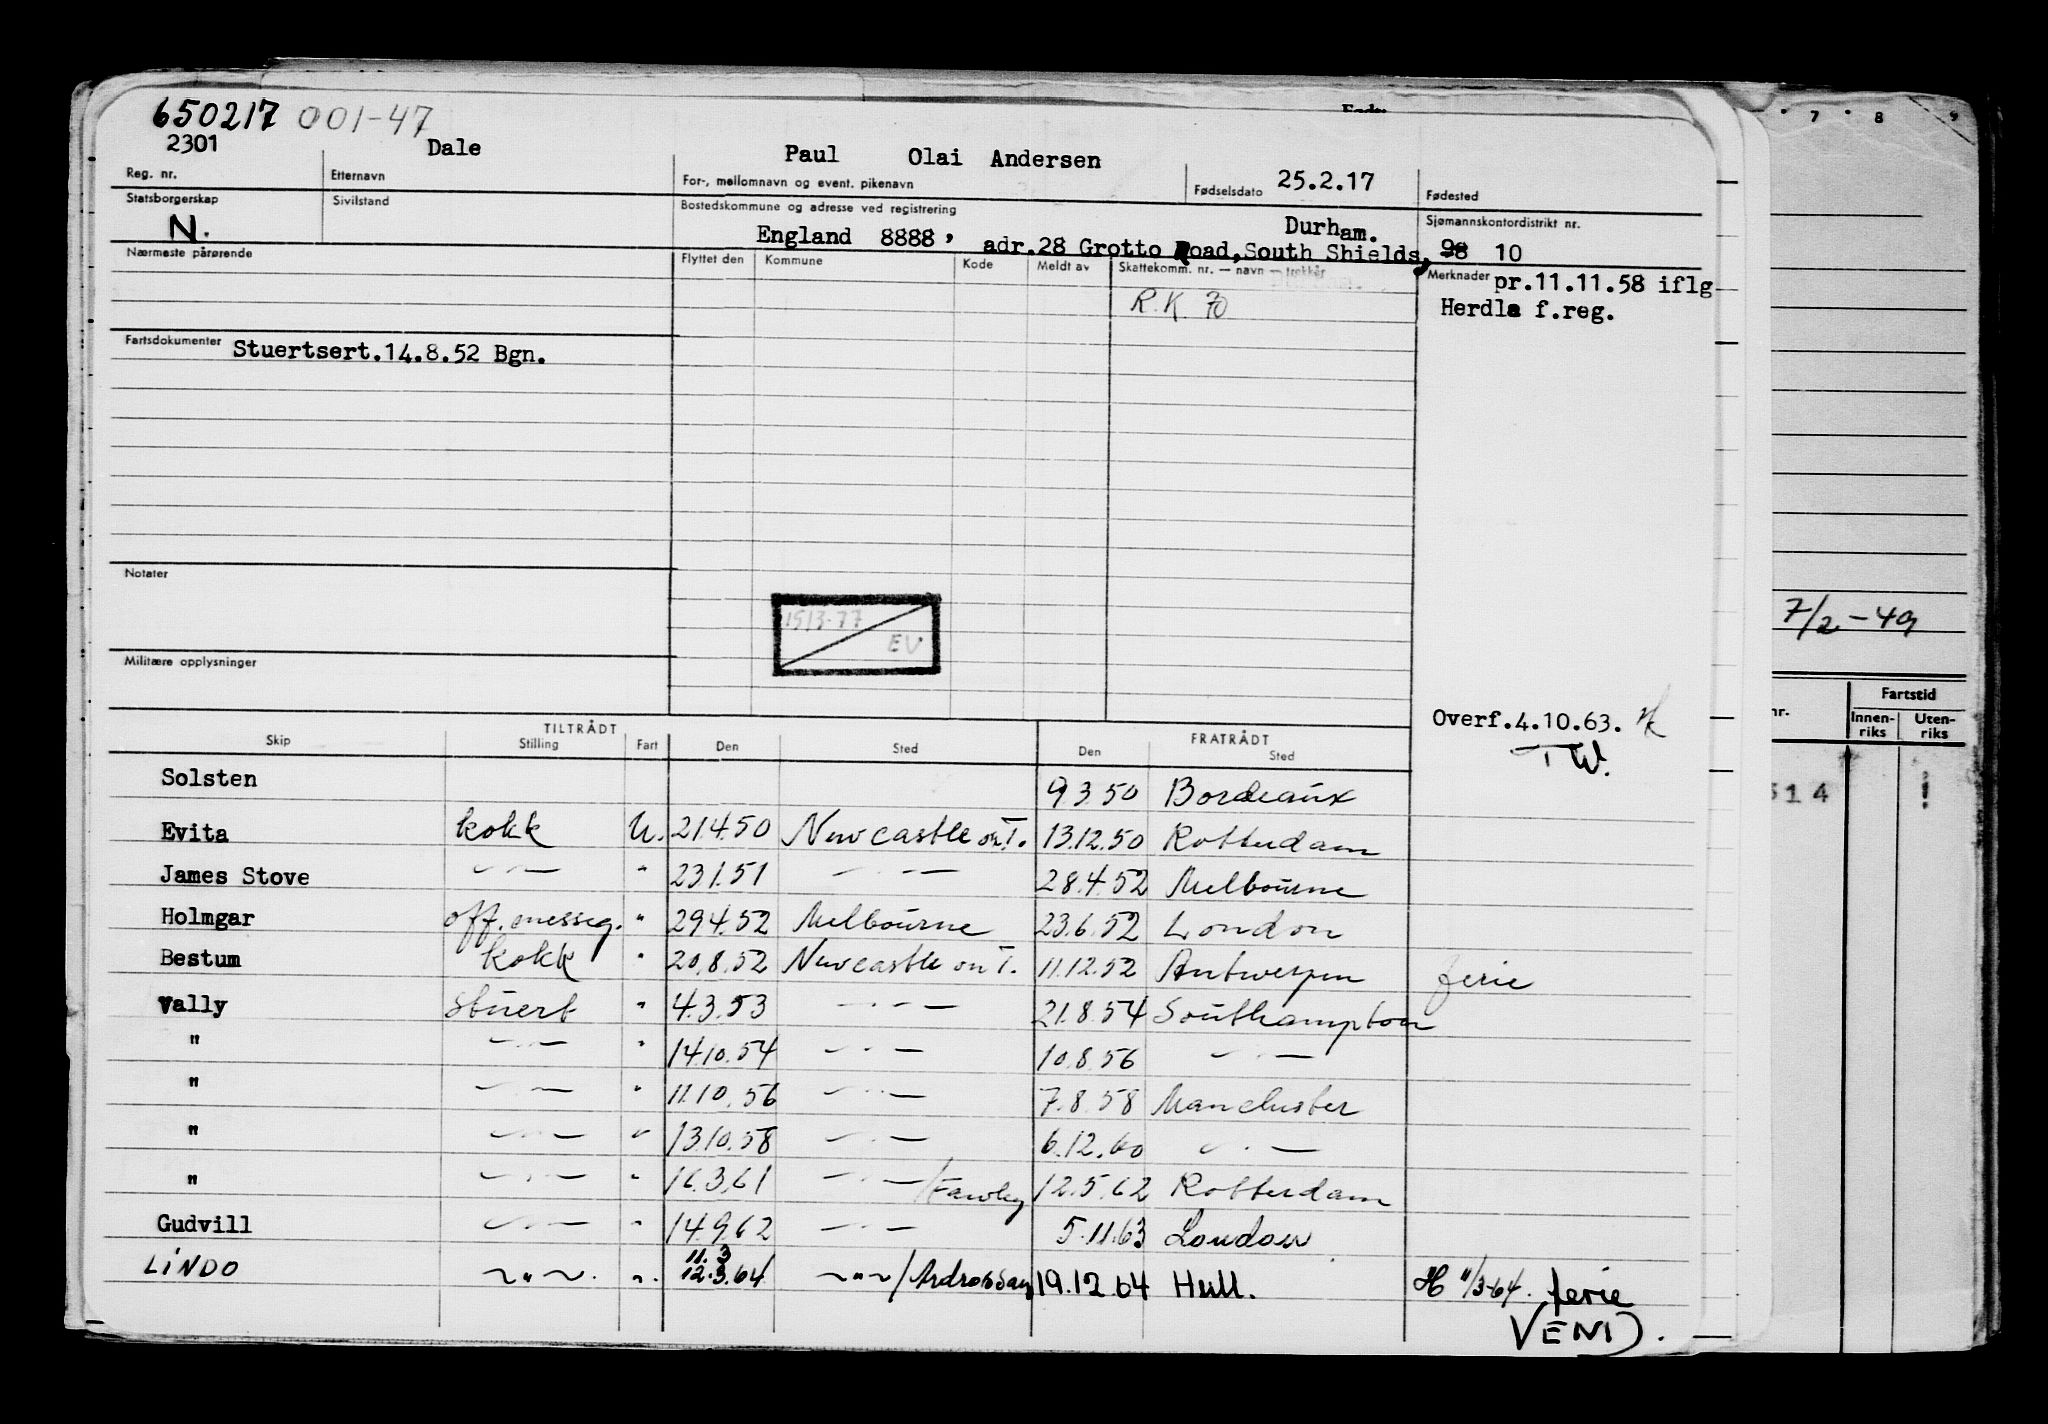 650217 001-47
2301 Dale Paul Olai Andersen 25.2.17
Reg. nr. Etternavn For-, mellomnavn og event. pikenavn Fødselsdato Fødested
Statsborgerskap Sivilstand Bostedskommune og adresse ved registrering Sjømannskontordistrikt nr.
N. England 8888, adr.28 Grotto Road,South Shields, Durham. 98 10
Nærmeste pårørende Flyttet den Kommune Kode Meldt av Skattekomm. nr. – navn – trekkår Merknader pr.11.11.58 iflg
R.K. 70 Herdla f.reg.
Fartsdokumenter Stuertsert.14.8.52 Bgn.
Notater
1513-77
EV
7/2-49
Militære opplysninger
Overf.4.10.63.
TW.
Fartstid
nr. Innen-riks Uten-riks
TILTRÅDT FRATRÅDT
Skip Stilling Fart Den Sted Den Sted
Solsten 9.3.50 Bordeaux
Evita kokk U. 21.4.50 Newcastle on T. 13.12.50 Rotterdam
James Stove —"— " 23.1.51 —"— 28.4.52 Melbourne
Holmgar off.messeg. " 29.4.52 Melbourne 23.6.52 London
Bestum kokk " 20.8.52 Newcastle on T. 11.12.52 Antwerpen ferie
Vally stuert " 4.3.53 —"— 21.8.54 Southampton
" —"— " 14.10.54 —"— 10.8.56 —"—
" —"— " 11.10.56 —"— 7.8.58 Manchester
" —"— " 13.10.58 —"— 6.12.60 —"—
" —"— " 16.3.61 —"— /Fawley 12.5.62 Rotterdam
Gudvill —"— " 14.9.62 —"— 5.11.63 London
11.3
LINDO ~"~. ". 12.3.64 ~"~/Ardrossan 19.12.64 Hull. 11/3-64. ferie
VEND.
514
7 8 9